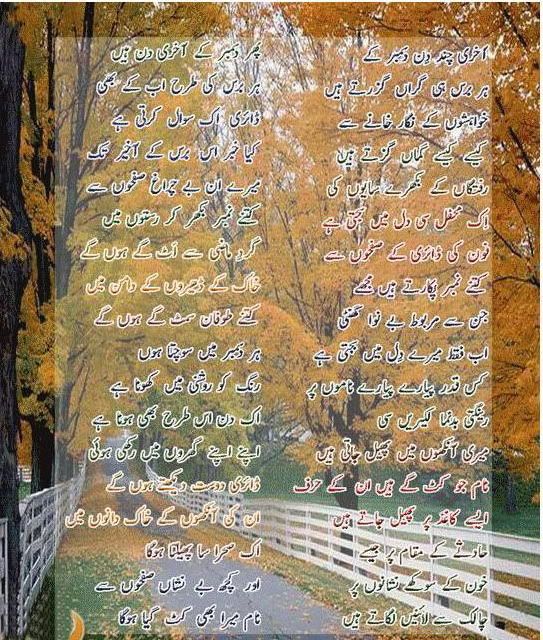 آخری چند دن دسمبر کے
ہر برس ہی گراں گزرتے ہیں
خواہشوں کے نگار خانے سے
کیسے کیسے گماں گزرتے ہیں
رفتگاں کے بکھرے سایوں کی
اک محفل سی دل میں سجتی ہے
فون کی ڈائری کے صفحوں سے
کتنے نمبر پکارتے ہیں مجھے
جن سے مربوط بے نوا گھنٹی
اب فقط میرے دل میں بجتی ہے
کس قدر پیارے پیارے ناموں پر
رینگتی بدنما لکیریں سی
میری آنکھوں میں پھیل جاتی ہیں
نام جو کٹ گے ہیں ان کے حرف
ایسے کاغذ پر پھیل جاتے ہیں
حادثے کے مقام پر جیسے
خون کے سوکھے نشانوں پر
چاک سے لائنیں لگاتے ہیں
پھر دسمبر کے آخری دن ہیں
ہر برس کی طرح اب کے بھی
ڈائری اک سوال کرتی ہے
کیا خبر اس برس کے آخیر تک
میرے ان بے چراغ صفحوں سے
کتنے نمبر بکھر کر رستوں میں
گرد ماضی سے اٹ گے ہوں گے
خاک کے ڈھیروں کے دامن میں
کتنے طوفان سمٹ گے ہوں گے
ہر دسمبر میں سوچتا ہوں
رنگ کو روشنی میں کھونا ہے
اک دن اس طرح بھی ہونا ہے
اپنے اپنے گھروں میں رکھی ہوئی
ڈائری دوست دیکھتے ہوں گے
ان کی آنکھوں کے خاک دانوں میں
اک صحرا سا پھیلتا ہوگا
اور کچھ بے نشاں صفحوں سے
نام میرا بھی کٹ گیا ہوگا